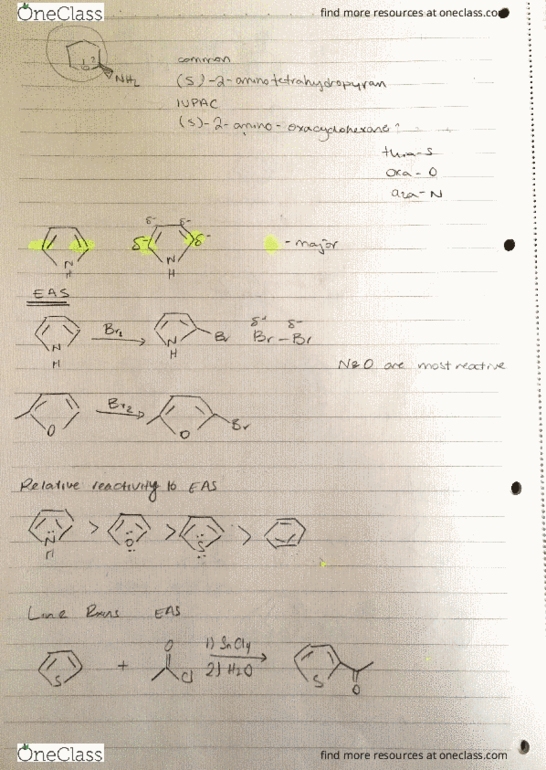 OneClass
find more resources at oneclass.com
NH₂
common
(S)-2-aminotetrahydropyran
IUPAC
(S)-2-amino-oxacyclohexane?
thia-S
oxa-O
aza-N
δ- δ-
δ- δ-
- major
N
H
N
H
EAS
Br₂
Br
δ+ δ-
Br-Br
N
H
N
H
N&O are most reactive
Br₂
O
O
Br
Relative reactivity to EAS
> > >
N
H
O
S
EAS
O
1) SnCl4
S
+
Cl
2) H2O
S
O
OneClass
find more resources at oneclass.com